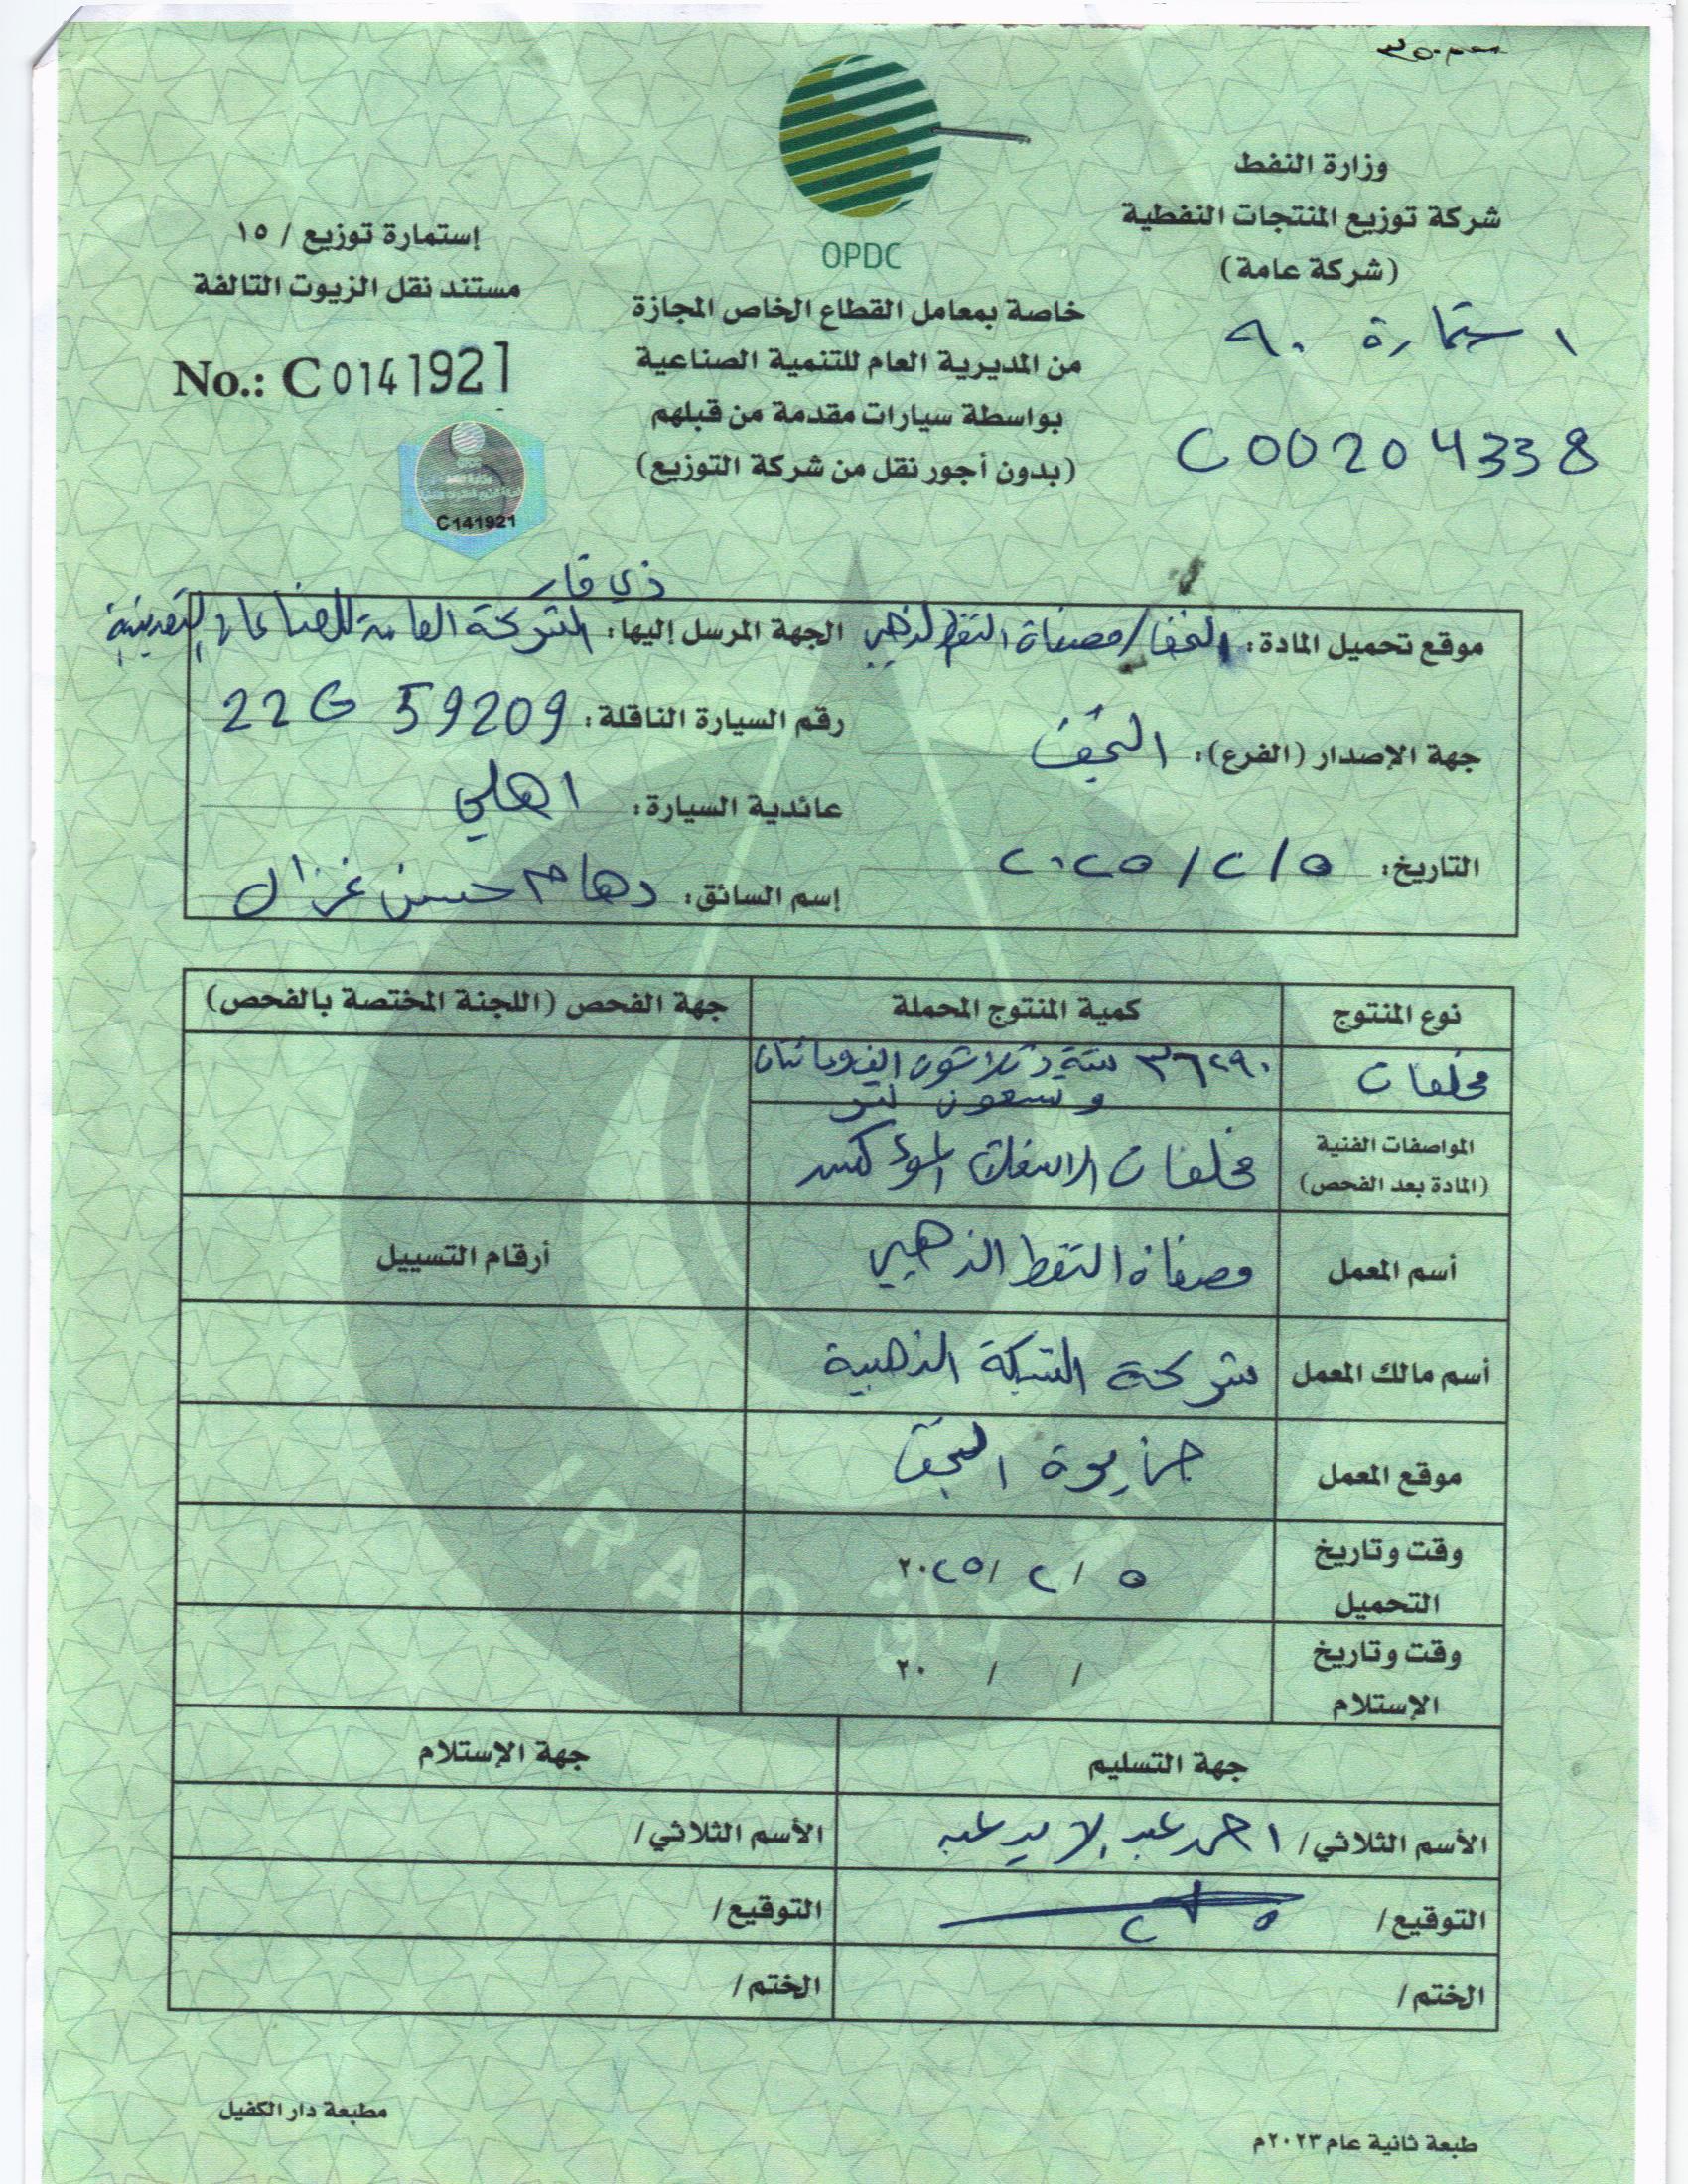 وزارة النفط
شركة توزيع المنتجات النفطية
(شركة عامة)
استمارة ٩٠
C00204338
OPDC
خاصة بمعامل القطاع الخاص المجازة
من المديرية العام للتنمية الصناعية
بواسطة سيارات مقدمة من قبلهم
(بدون أجور نقل من شركة التوزيع)
إستمارة توزيع / ١٥
مستند نقل الزيوت التالفة
No.: C 0141921
C141921
موقع تحميل المادة: النجف/مصفاة النفط الذهبي
الجهة المرسل إليها: الشركة العامة للصناعات التعدينية
ذي قار
جهة الإصدار (الفرع): النجف
رقم السيارة الناقلة: 59209 22G
عائدية السيارة: اهلي
التاريخ: ٥ / ٢ / ٢٠٢٥
إسم السائق: دهام حسن غزال
نوع المنتوج كمية المنتوج المحملة جهة الفحص (اللجنة المختصة بالفحص)
مخلفات ٣٦٢٩٠ ستة وثلاثون الف ومائتان
وتسعون لتر
المواصفات الفنية
(المادة بعد الفحص)
مخلفات الاسفلت المؤكسد
أسم المعمل مصفاة النفط الذهبي أرقام التسييل
أسم مالك المعمل شركة الشبكة الذهبية
موقع المعمل النجف
وقت وتاريخ
التحميل
٥ / ٢ / ٢٠٢٥
وقت وتاريخ
الإستلام
/ / ٢٠
IRAQ العراق
جهة التسليم جهة الإستلام
الأسم الثلاثي/ احمد عبد الأسم الثلاثي/
التوقيع/ ٥/٢ التوقيع/
الختم/ الختم/
مطبعة دار الكفيل
طبعة ثانية عام ٢٠٢٣م